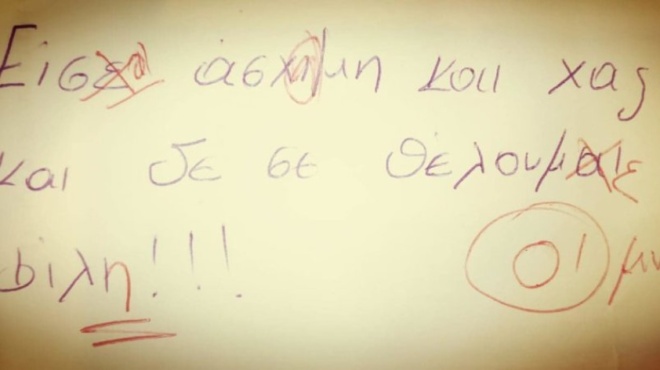 Είσαι άσχημη και χας
και δε σε θέλουμε
φίλη!!! οι μν